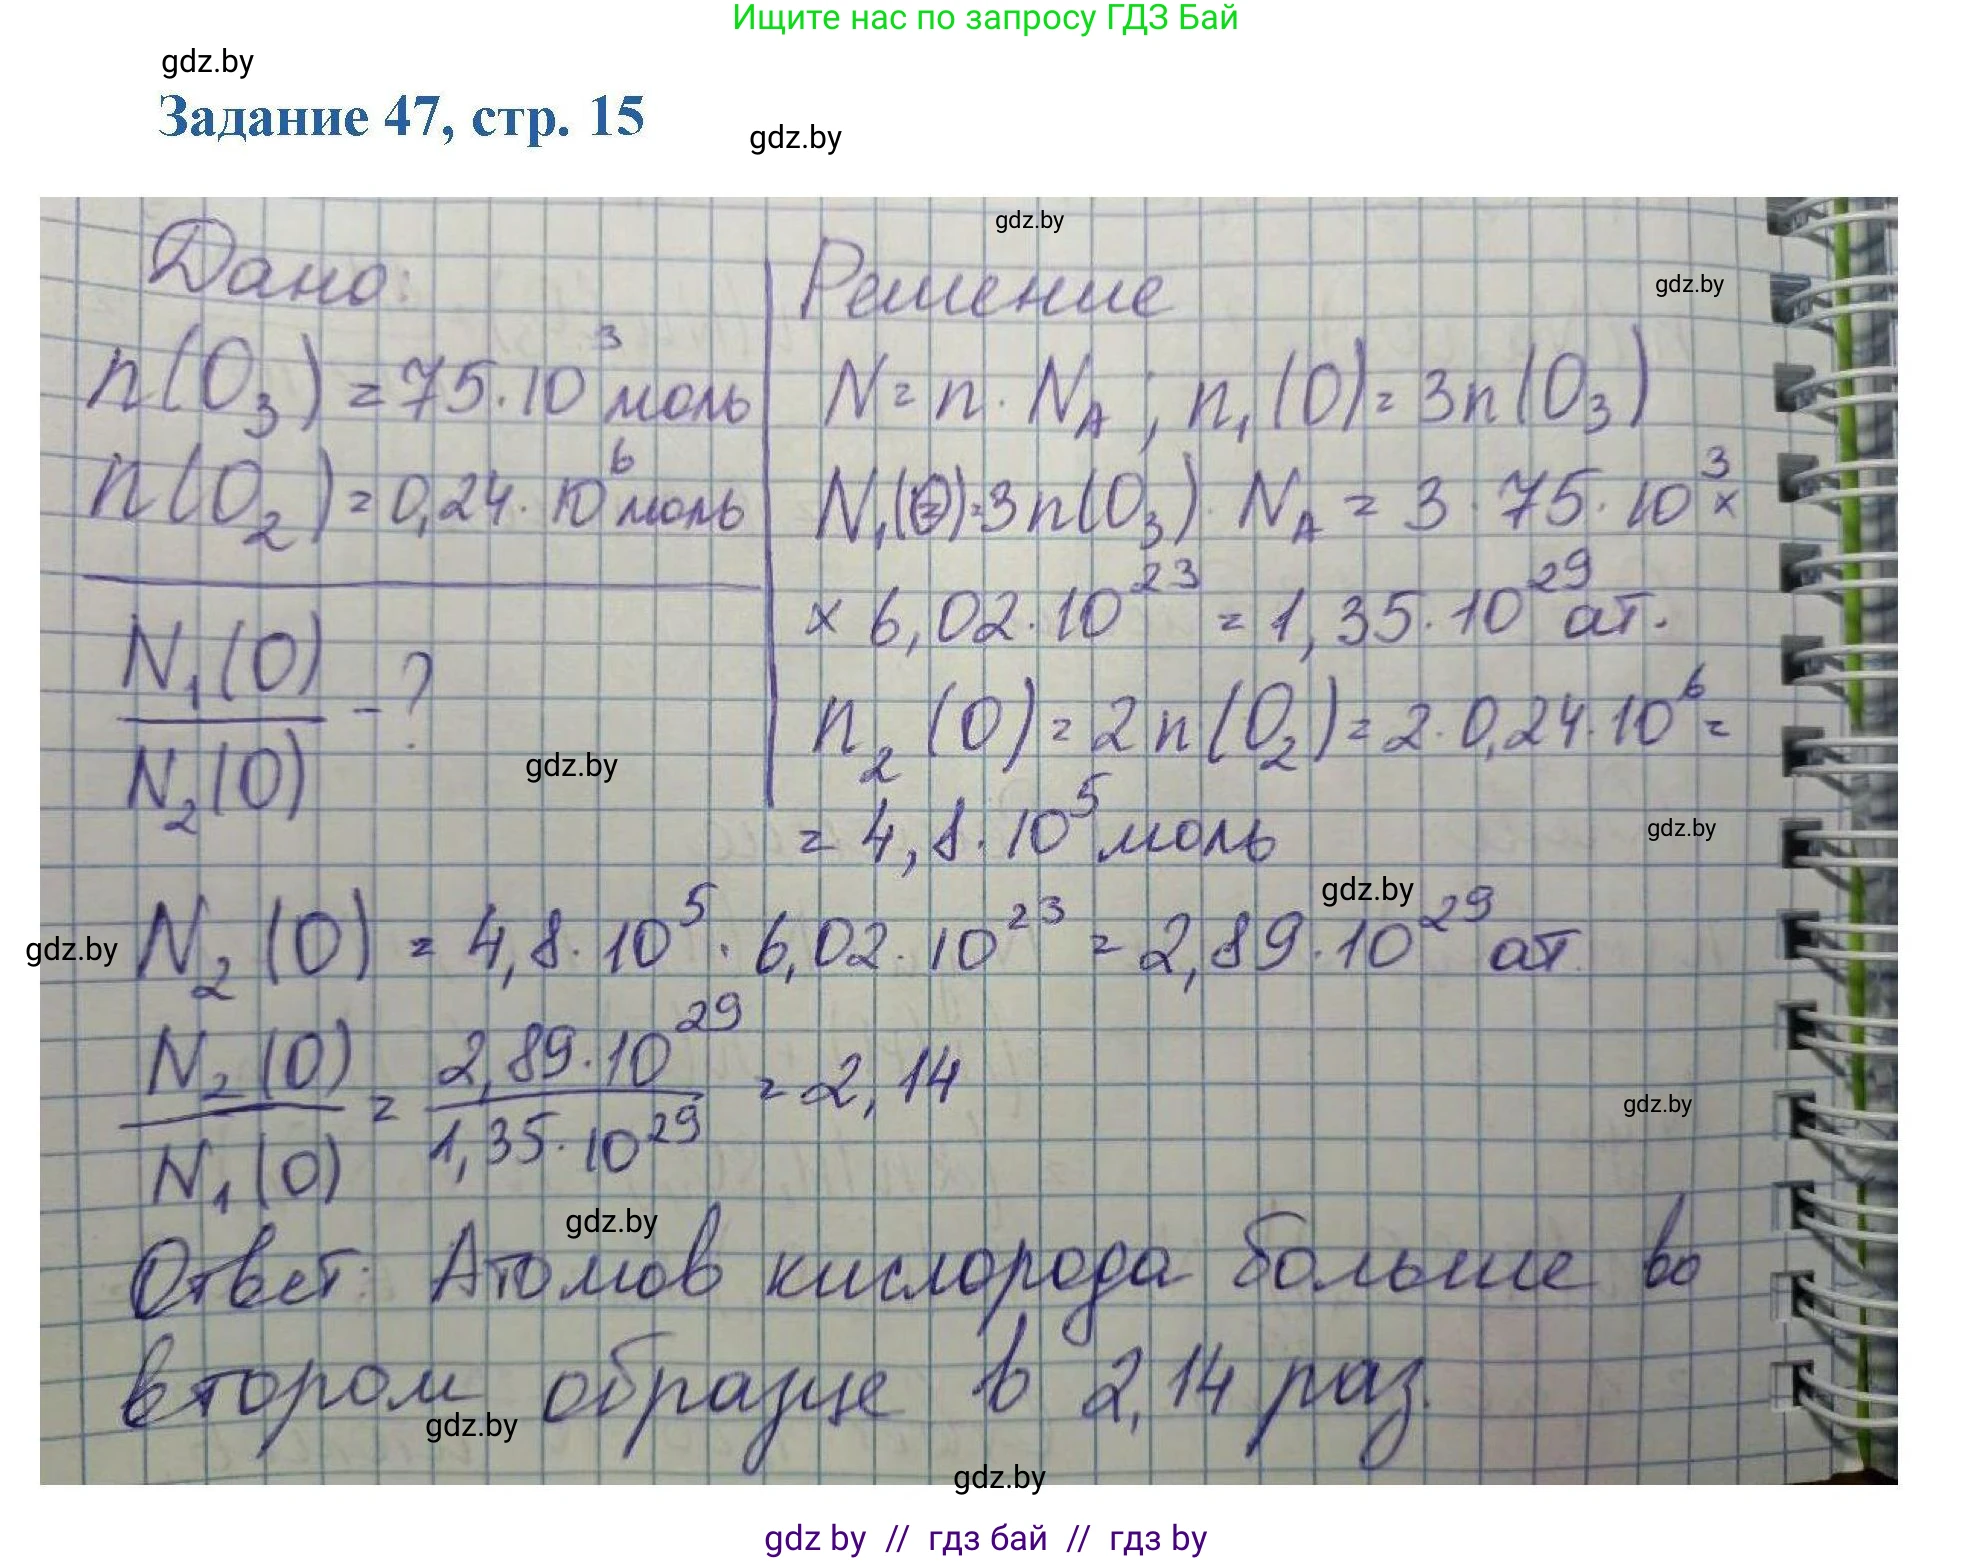 Ищите нас по запросу ГДЗ Бай
gdz.by
Задание 47, стр. 15
gdz.by
gdz.by
Дано:
n(O₃) = 75·10³ моль
n(O₂) = 0,24·10⁶ моль
N₁(O)
/
N₂(O)
- ?
gdz.by
Решение
gdz.by
N = n · N_A ; n₁(O) = 3n(O₃)
N₁(O) = 3n(O₃) · N_A = 3 · 75 · 10³ ×
× 6,02 · 10²³ = 1,35 · 10²⁹ ат.
n₂(O) = 2n(O₂) = 2 · 0,24 · 10⁶ =
= 4,8 · 10⁵ моль
gdz.by
gdz.by
gdz.by
N₂(O) = 4,8 · 10⁵ · 6,02 · 10²³ = 2,89 · 10²⁹ ат.
N₂(O) / N₁(O) = 2,89 · 10²⁹ / 1,35 · 10²⁹ = 2,14
gdz.by
gdz.by
Ответ: Атомов кислорода больше во
втором образце в 2,14 раз.
gdz.by
gdz.by
gdz by // гдз бай // гдз by